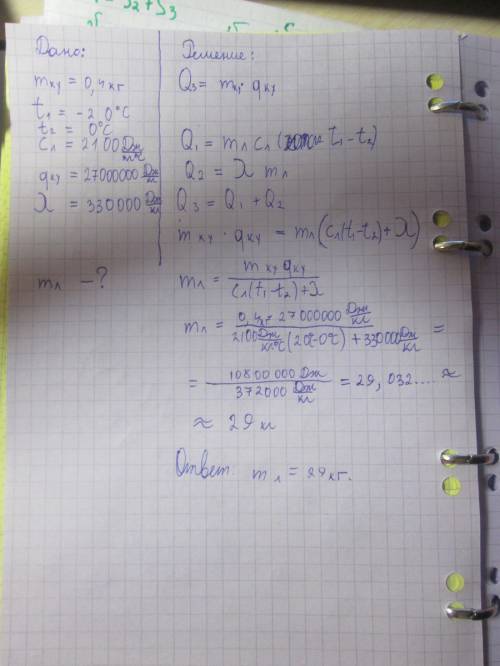 Дано:
m ку = 0,4 кг
t₁ = -20°C
t₂ = 0°C
Cл = 2100 Дж/кг°C
qку = 27000000 Дж/кг
λ = 330000 Дж/кг
mл - ?
Решение:
Q₃ = mку · qку
Q₁ = mл cл ( t₁ - t₂)
Q₂ = λ mл
Q₃ = Q₁ + Q₂
m ку · qку = mл (cл(t₁-t₂)+λ)
mл = mку qку / cл(t₁-t₂)+λ
mл = 0,4кг · 27000000 Дж/кг / 2100 Дж/кг°C (20°C-0°C) + 330000 Дж/кг =
= 10800000 Дж / 372000 Дж/кг = 29,032.... ≈
≈ 29 кг
Ответ: mл = 29 кг.